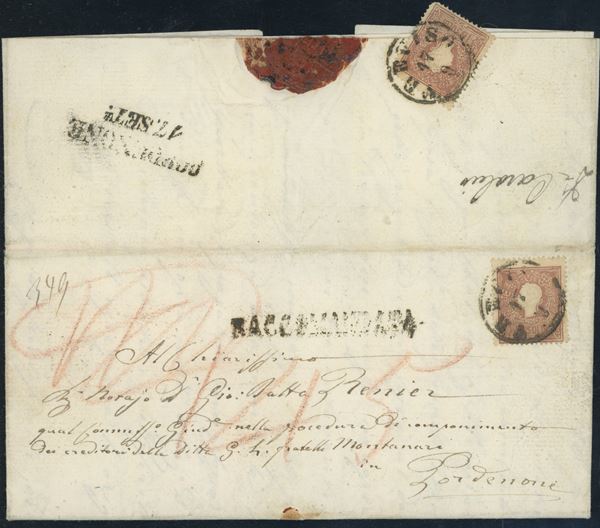 PORDENONE
17. SETT.
349
RACCOMANDATA
Al Chiarissimo
Notajo Dr. Gio: Batta Renier
qual Commisso. Giud. nella procedura di componimento
dei creditori della Ditta G. L. fratelli Montanari
in
Pordenone